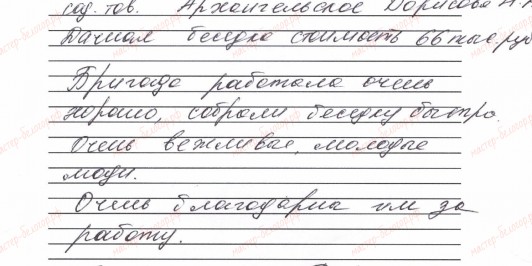 сад. тов. Архангельское Борисова Н.
Дачная беседка стоимость 66 тыс. руб
Бригада работала очень
хорошо, собрали беседку быстро.
Очень вежливые, молодые
люди.
Очень благодарна им за
работу.